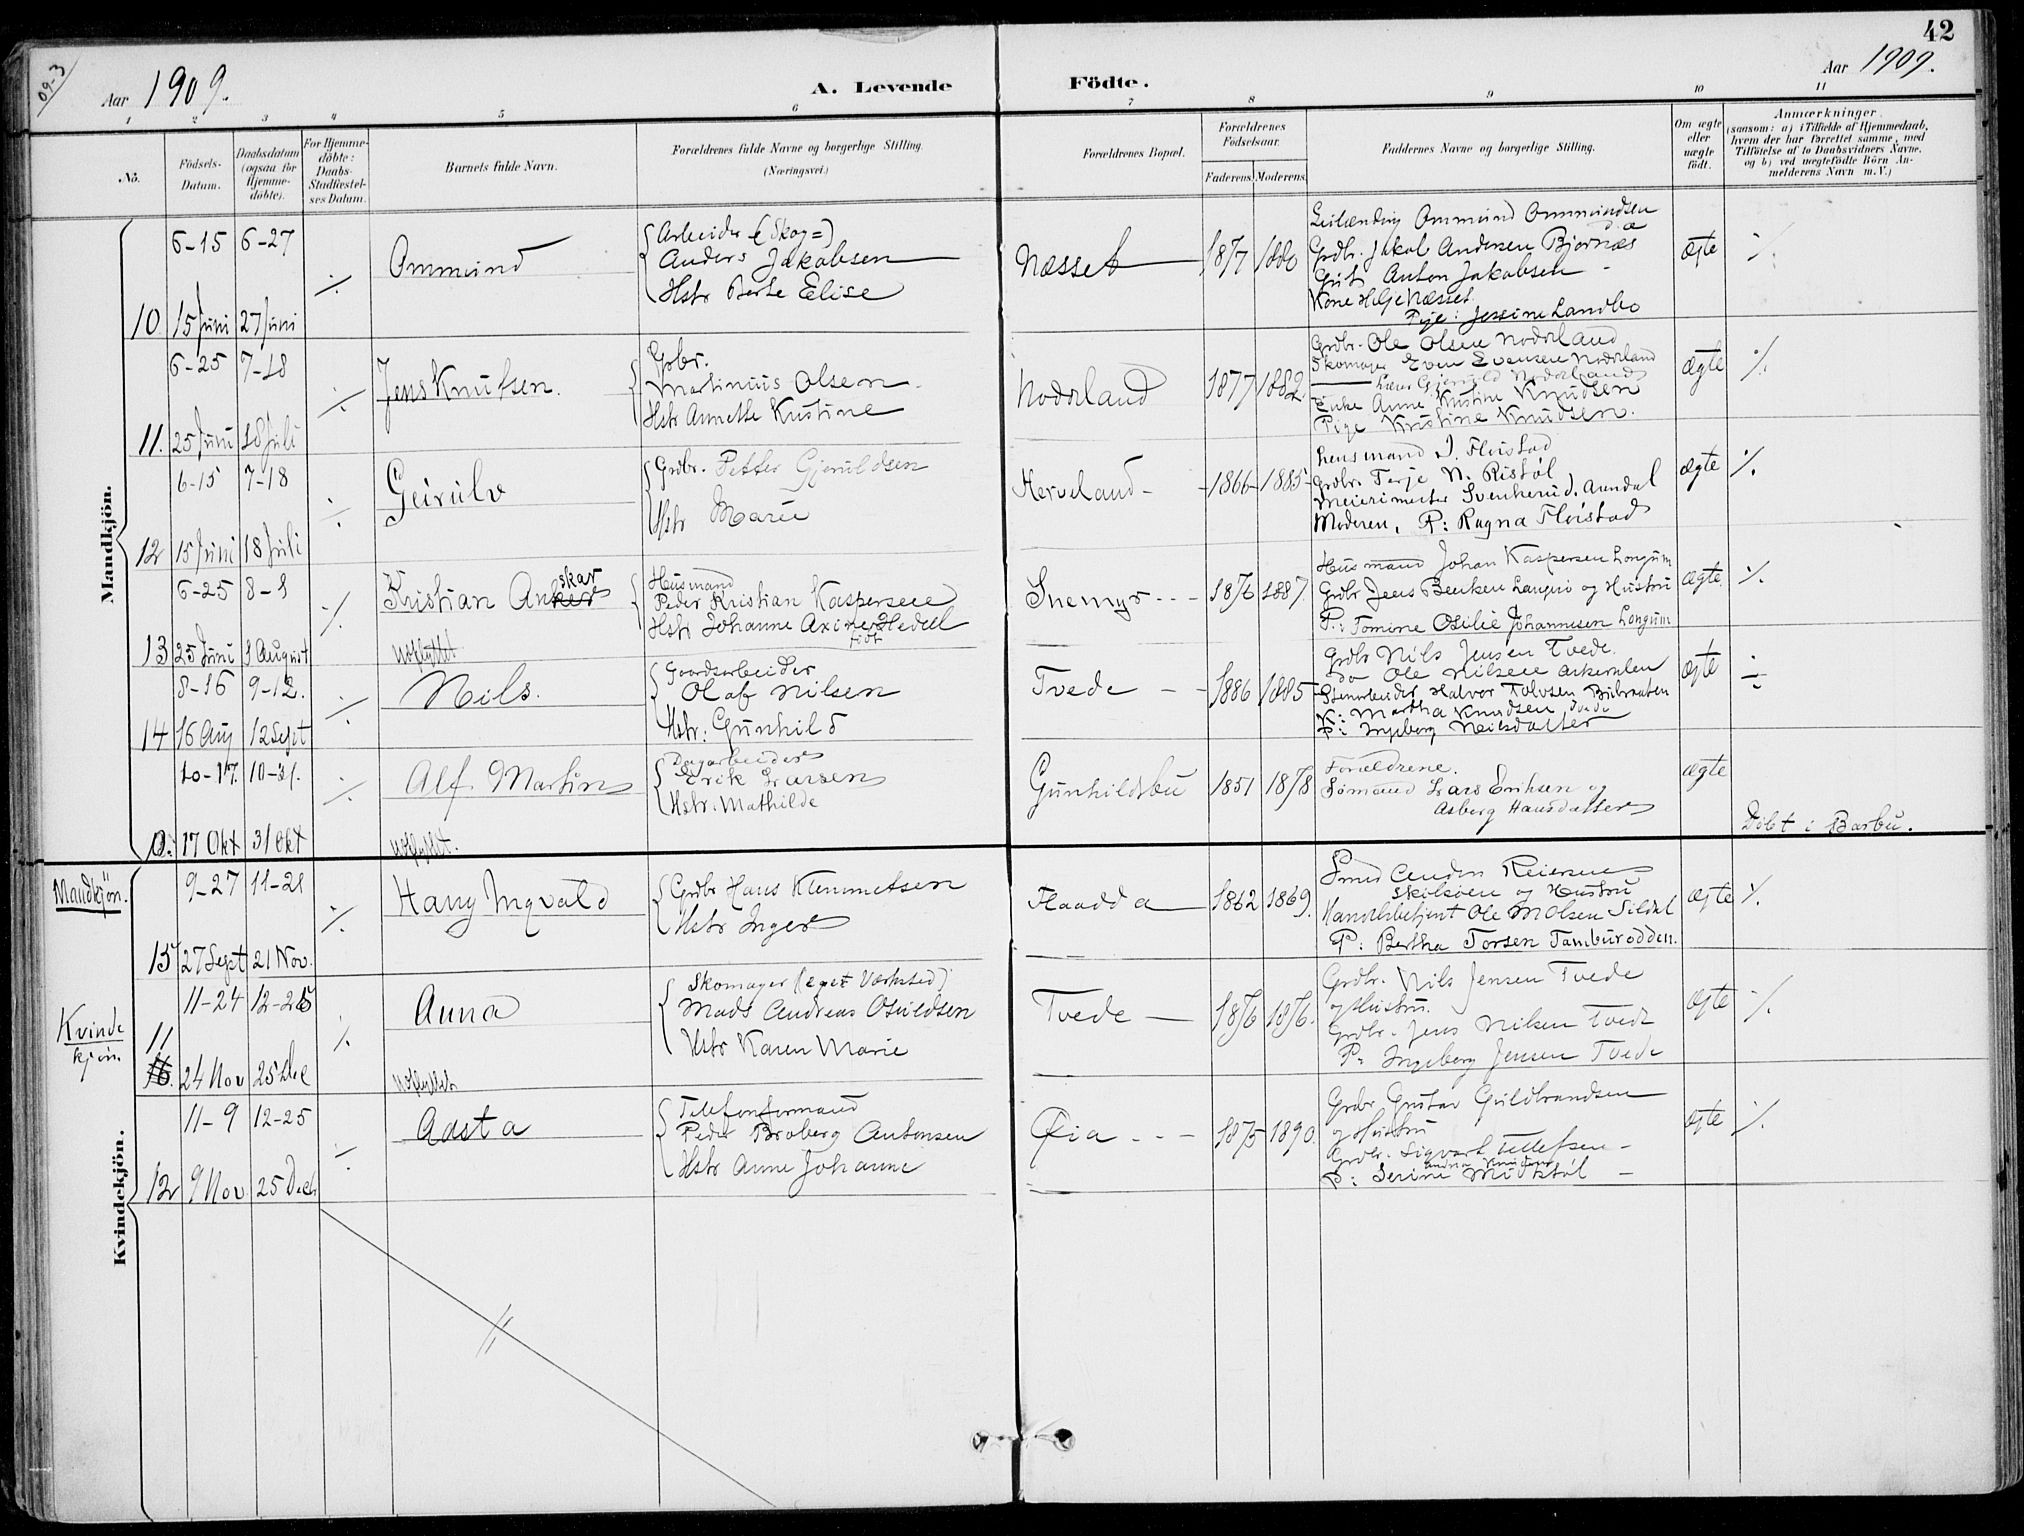 42
09-3
Aar 1909.
A. Levende Födte.
Aar 1909.
1 2 3 4 5 6 7 8 9 10 11
No.
Födsels-
Datum.
Daabsdatum
(ogsaa for
Hjemme-
döbte).
For Hjemme-
döbte:
Daabs-
Stadfæstel-
ses Datum.
Barnets fulde Navn.
Forældrenes fulde Navne og borgerlige Stilling.
(Næringsvei.)
Forældrenes Bopæl.
Forældrenes
Födselsaar.
Faderens.
Moderens.
Faddernes Navne og borgerlige Stilling.
Om ægte
eller
uægte
födt.
Anmærkninger.
(saasom: a) i Tilfælde af Hjemmedaab,
hvem der har forrettet samme, med
Tilföielse af to Daabsvidners Navne,
og b) ved uægtefödte Börn An-
melderens Navn m.V.)
Mandkjön.
6-15 6-27
10 15 Juni 27 Juni
Ommund
Arbeider (Skog=)
Anders Jakobsen
Hstr Berte Elise
Næsset
1877 1880
Ommund Ommundsen
Grdbr. Jakob Andersen Bjornæs
Anton Jakobsen
Kone Helje Næsset
Pige: Jessine Landbo
ægte
6-25 7-18
11. 25 Juni 18 Juli
Jens Knutsen.
Grbr.
Martinius Olsen
Hstr Annette Kristine
Nodeland
1877 1882.
Grdbr. Ole Olsen Nodeland
Skomager Even Evensen Nodeland
Enke Anne Kristine Knudsen
Pige Kristine Knudsen.
ægte
6-15 7-18
12 15 Juni 18 Juli
Geirulv
Grdbr. Petter Gjeruldsen
Hstr Marie
Herveland
1866 1885
Lensmand J. Fløistad
Grdbr. Terje N. Ristøl
Meierimester Svenkerud. Arendal
Moderen, P: Ragna Fløistad
ægte
6-25 8-1
13 25 Juni 1 August
Kristian Anker
skar
Husmand
Peder Kristian Kaspersen
Hstr Johanne Axine Hedell
født
Snemyr
1876 1887.
Husmand Johan Kaspersen Longum
Grdbr Jens Benken Langsø og Hustru
P: Tomine Otilie Johannesen Longum
ægte
udflyttet
8-16 9-12.
14 16 Aug 12 Sept
Nils.
Gaardsarbeider
Olaf Nilsen
Hstr: Gunhild
Tvede
1886 1885
Grdbr Nils Jensen Tvede.
do Ole Nilsen
Stenarbeider Halvor Tolvsen
K: Martha Knudsen Tvede
P: Ingeborg Nilsdatter
ægte
10-17. 10-31.
a. 17 Okt 31 Okt
Alf Martin
Dagarbeider
Erik Larsen
Hstr. Mathilde
Gunhildsbu
1851 1878
Forældrene.
Sømand Lars Eriksen og
Asberg Hansdatter
ægte
Døbt i Barbu.
udflyttet.
Mandkjön.
9-27 11-21
15 27 Sept 21 Nov.
Harry Ingvald
Grdbr Hans Klemmetsen
Hstr Inger
Flaadda
1862 1869.
Smed Anders Reiersen
og Hustru
Handelsbetjent Ole M Olsen Sildal
P: Bertha Torsen Tamburodden.
ægte
Kvinde
kjön.
11-24 12-25
11
16. 24 Nov 25 Dec
Anna
Skomager (eget Værksted)
Mads Andreas Osuldsen
Hstr Karen Marie
Tvede
1876 1876.
Grdbr. Nils Jensen Tvede
og Hustru.
Grdbr. Jens Nilsen Tvede
P: Ingeborg Jensen Tvede
ægte
udflyttet
Kvindekjön.
11-9 12-25
12 9 Nov 25 Decb
Aasta
Telefonformand
Peder Broberg Antonsen
Hstr Anne Johanne
Øia
1875 1890.
Grdbr Gustav Guldbrandsen
og Hustru
Grdbr. Sigvart Tellefsen
P: Serine Midtstøl
ægte